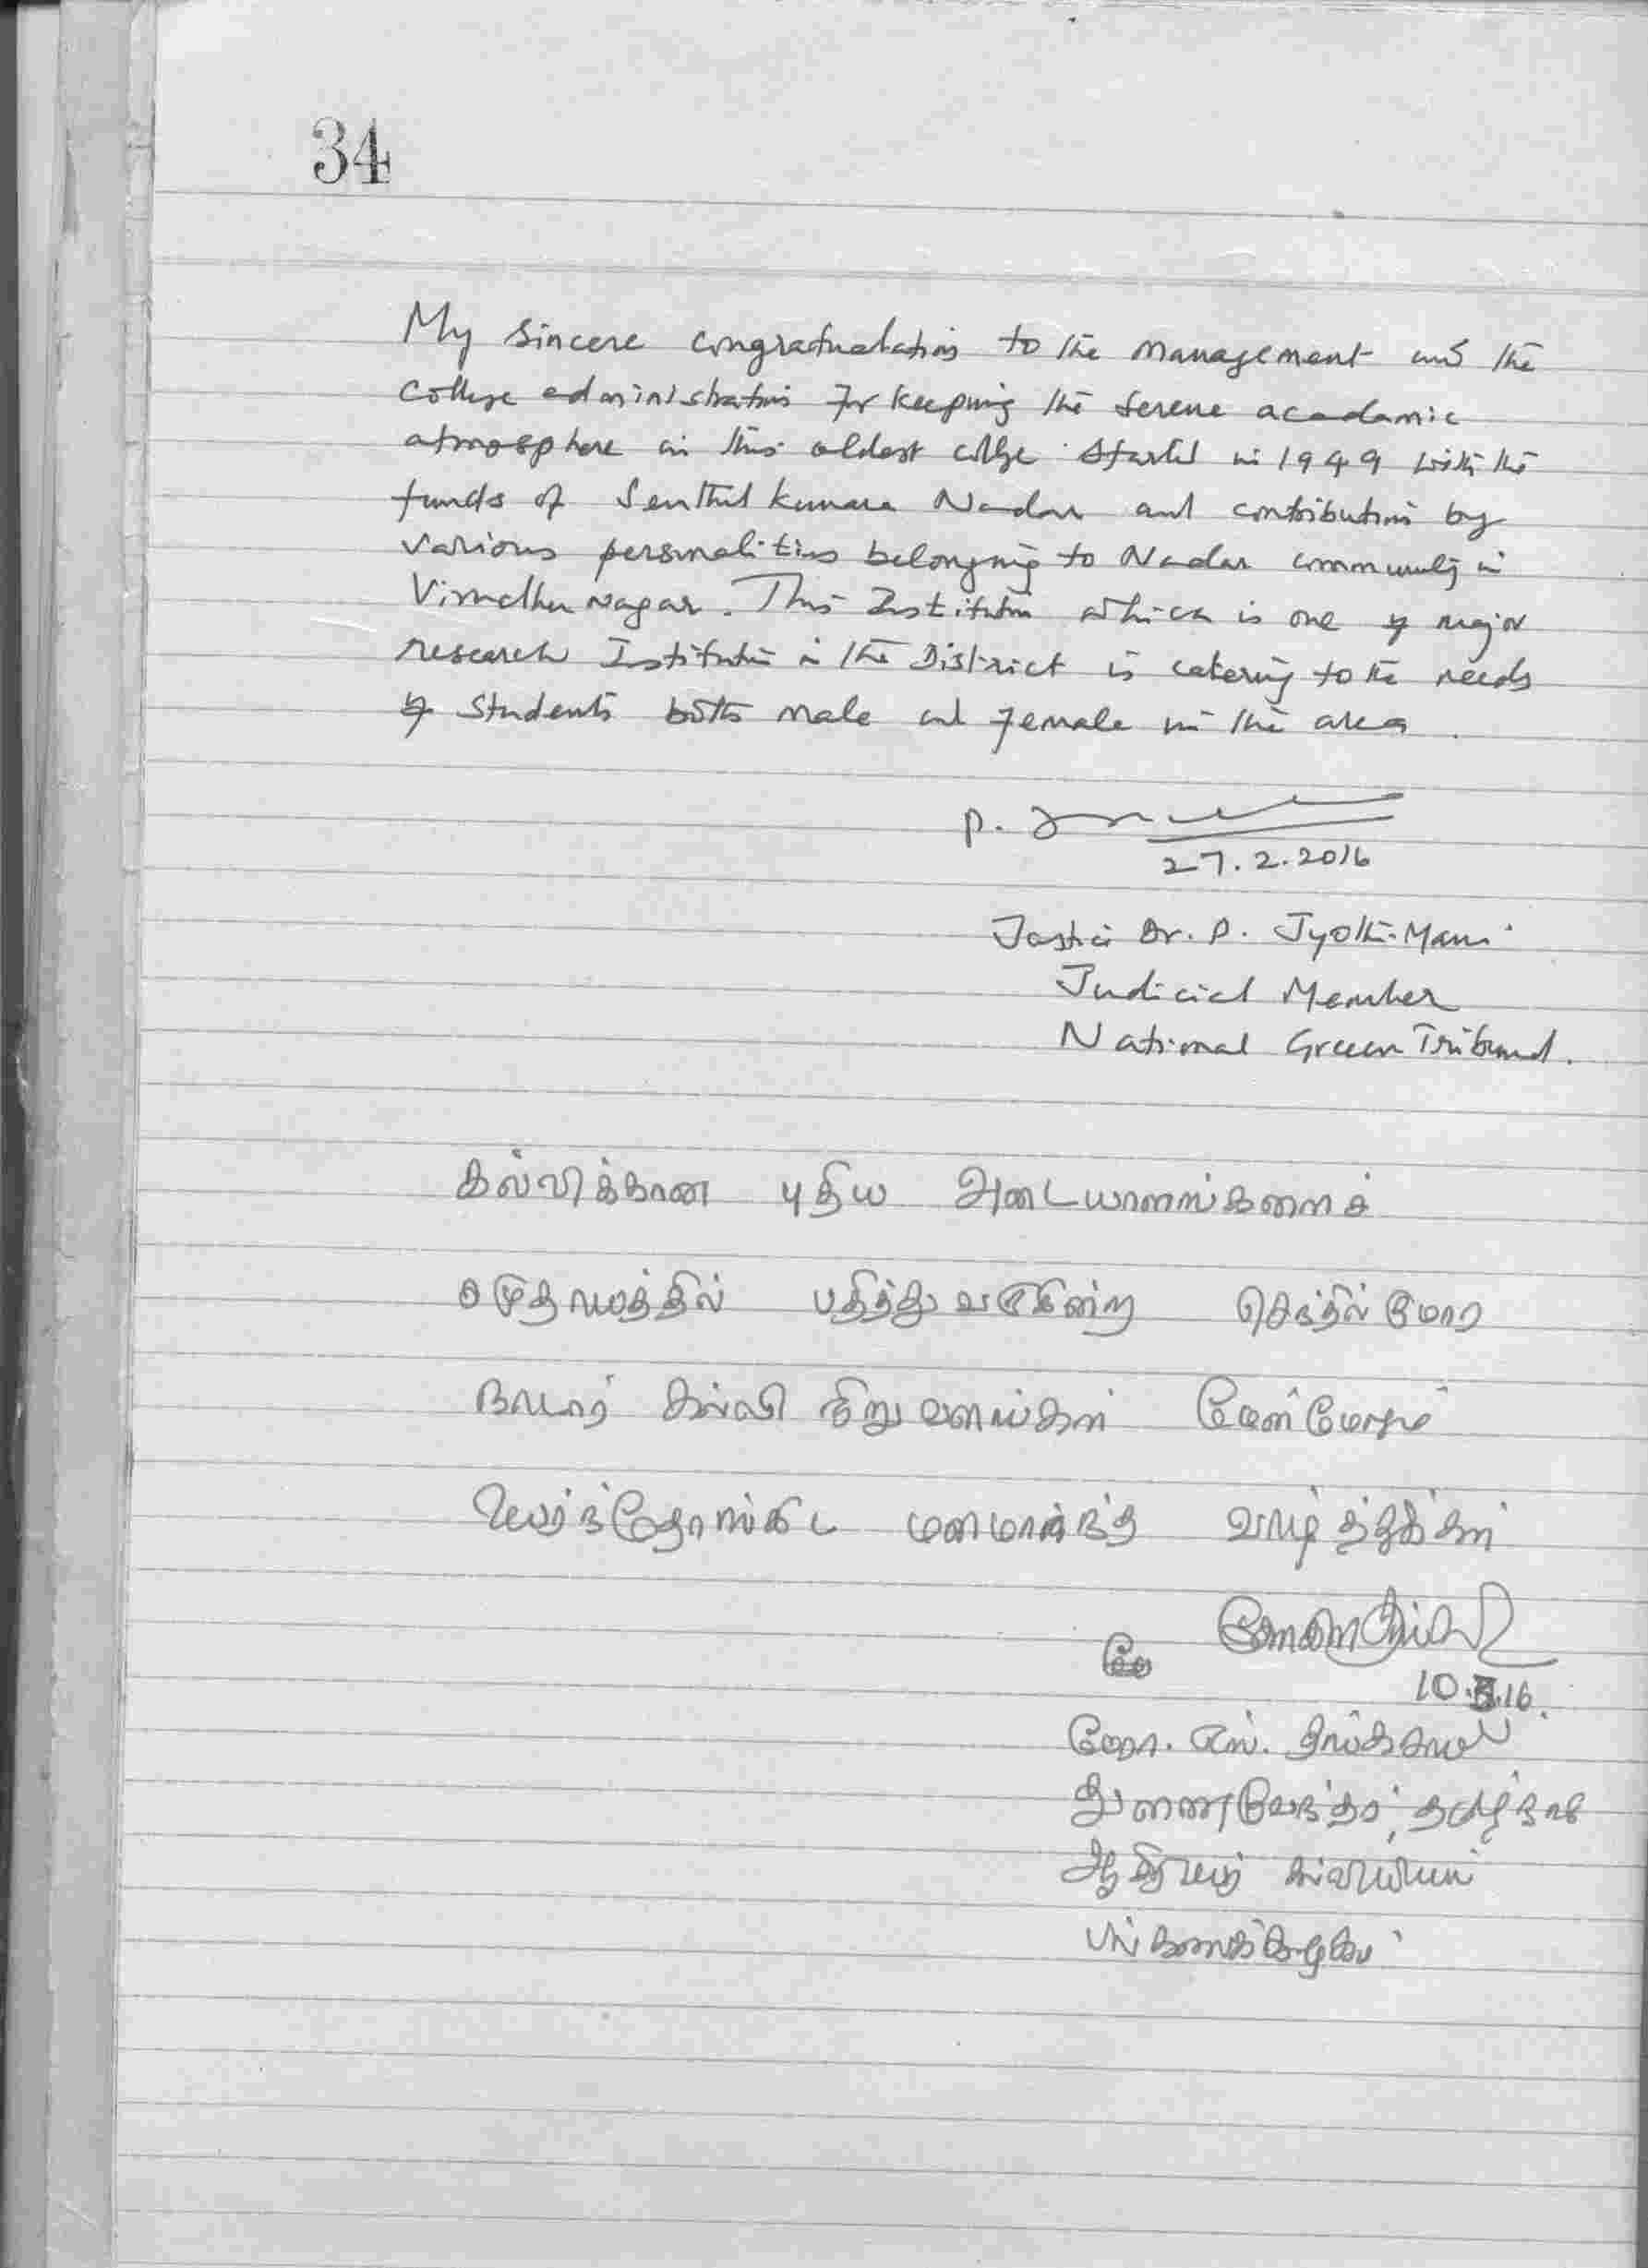 34
My Sincere congratulations to the Management and the
College administration for keeping the Serene acadamic
atmosphere in this oldest college started in 1949 with the
funds of Senthil Kumara Nadar and contribution by
various personalities belonging to Nadar community in
Virudhu Nagar. This Institution which is one of major
research Institution in the District is catering to the needs
of Students both male and female in the area.
P.
27.2.2016
Justice Dr. P. Jyothi Mani
Judicial Member
National Green Tribunal.
கல்விக்கான புதிய அடையாளங்களைச்
சமுதாயத்தில் பதித்து வருகின்ற செந்தில்குமார
நாடார் கல்வி நிறுவனங்கள் மேன்மேலும்
உயர்ந்தோங்கிட மனமார்ந்த வாழ்த்துக்கள்
10. .16.
துணைவேந்தர், தமிழ்நாடு
ஆசிரியர் கல்வியியல்
பல்கலைக்கழகம்